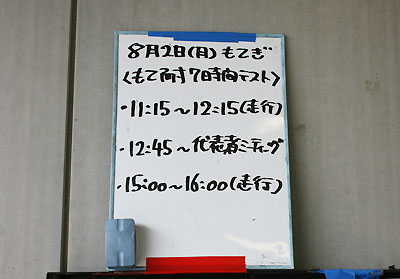 8月2日(月)もてぎ
〈もて耐7時間テスト〉
・11:15〜12:15(走行)
・12:45〜代表者ミーティング
・15:00〜16:00(走行)